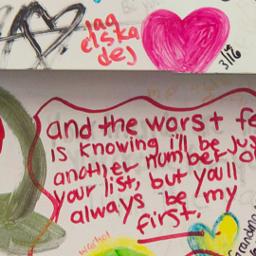 jag
elska
dej
3/16
and the worst fe
is knowing i'll be jus
another number on
your list, but you'll
always be my
first.